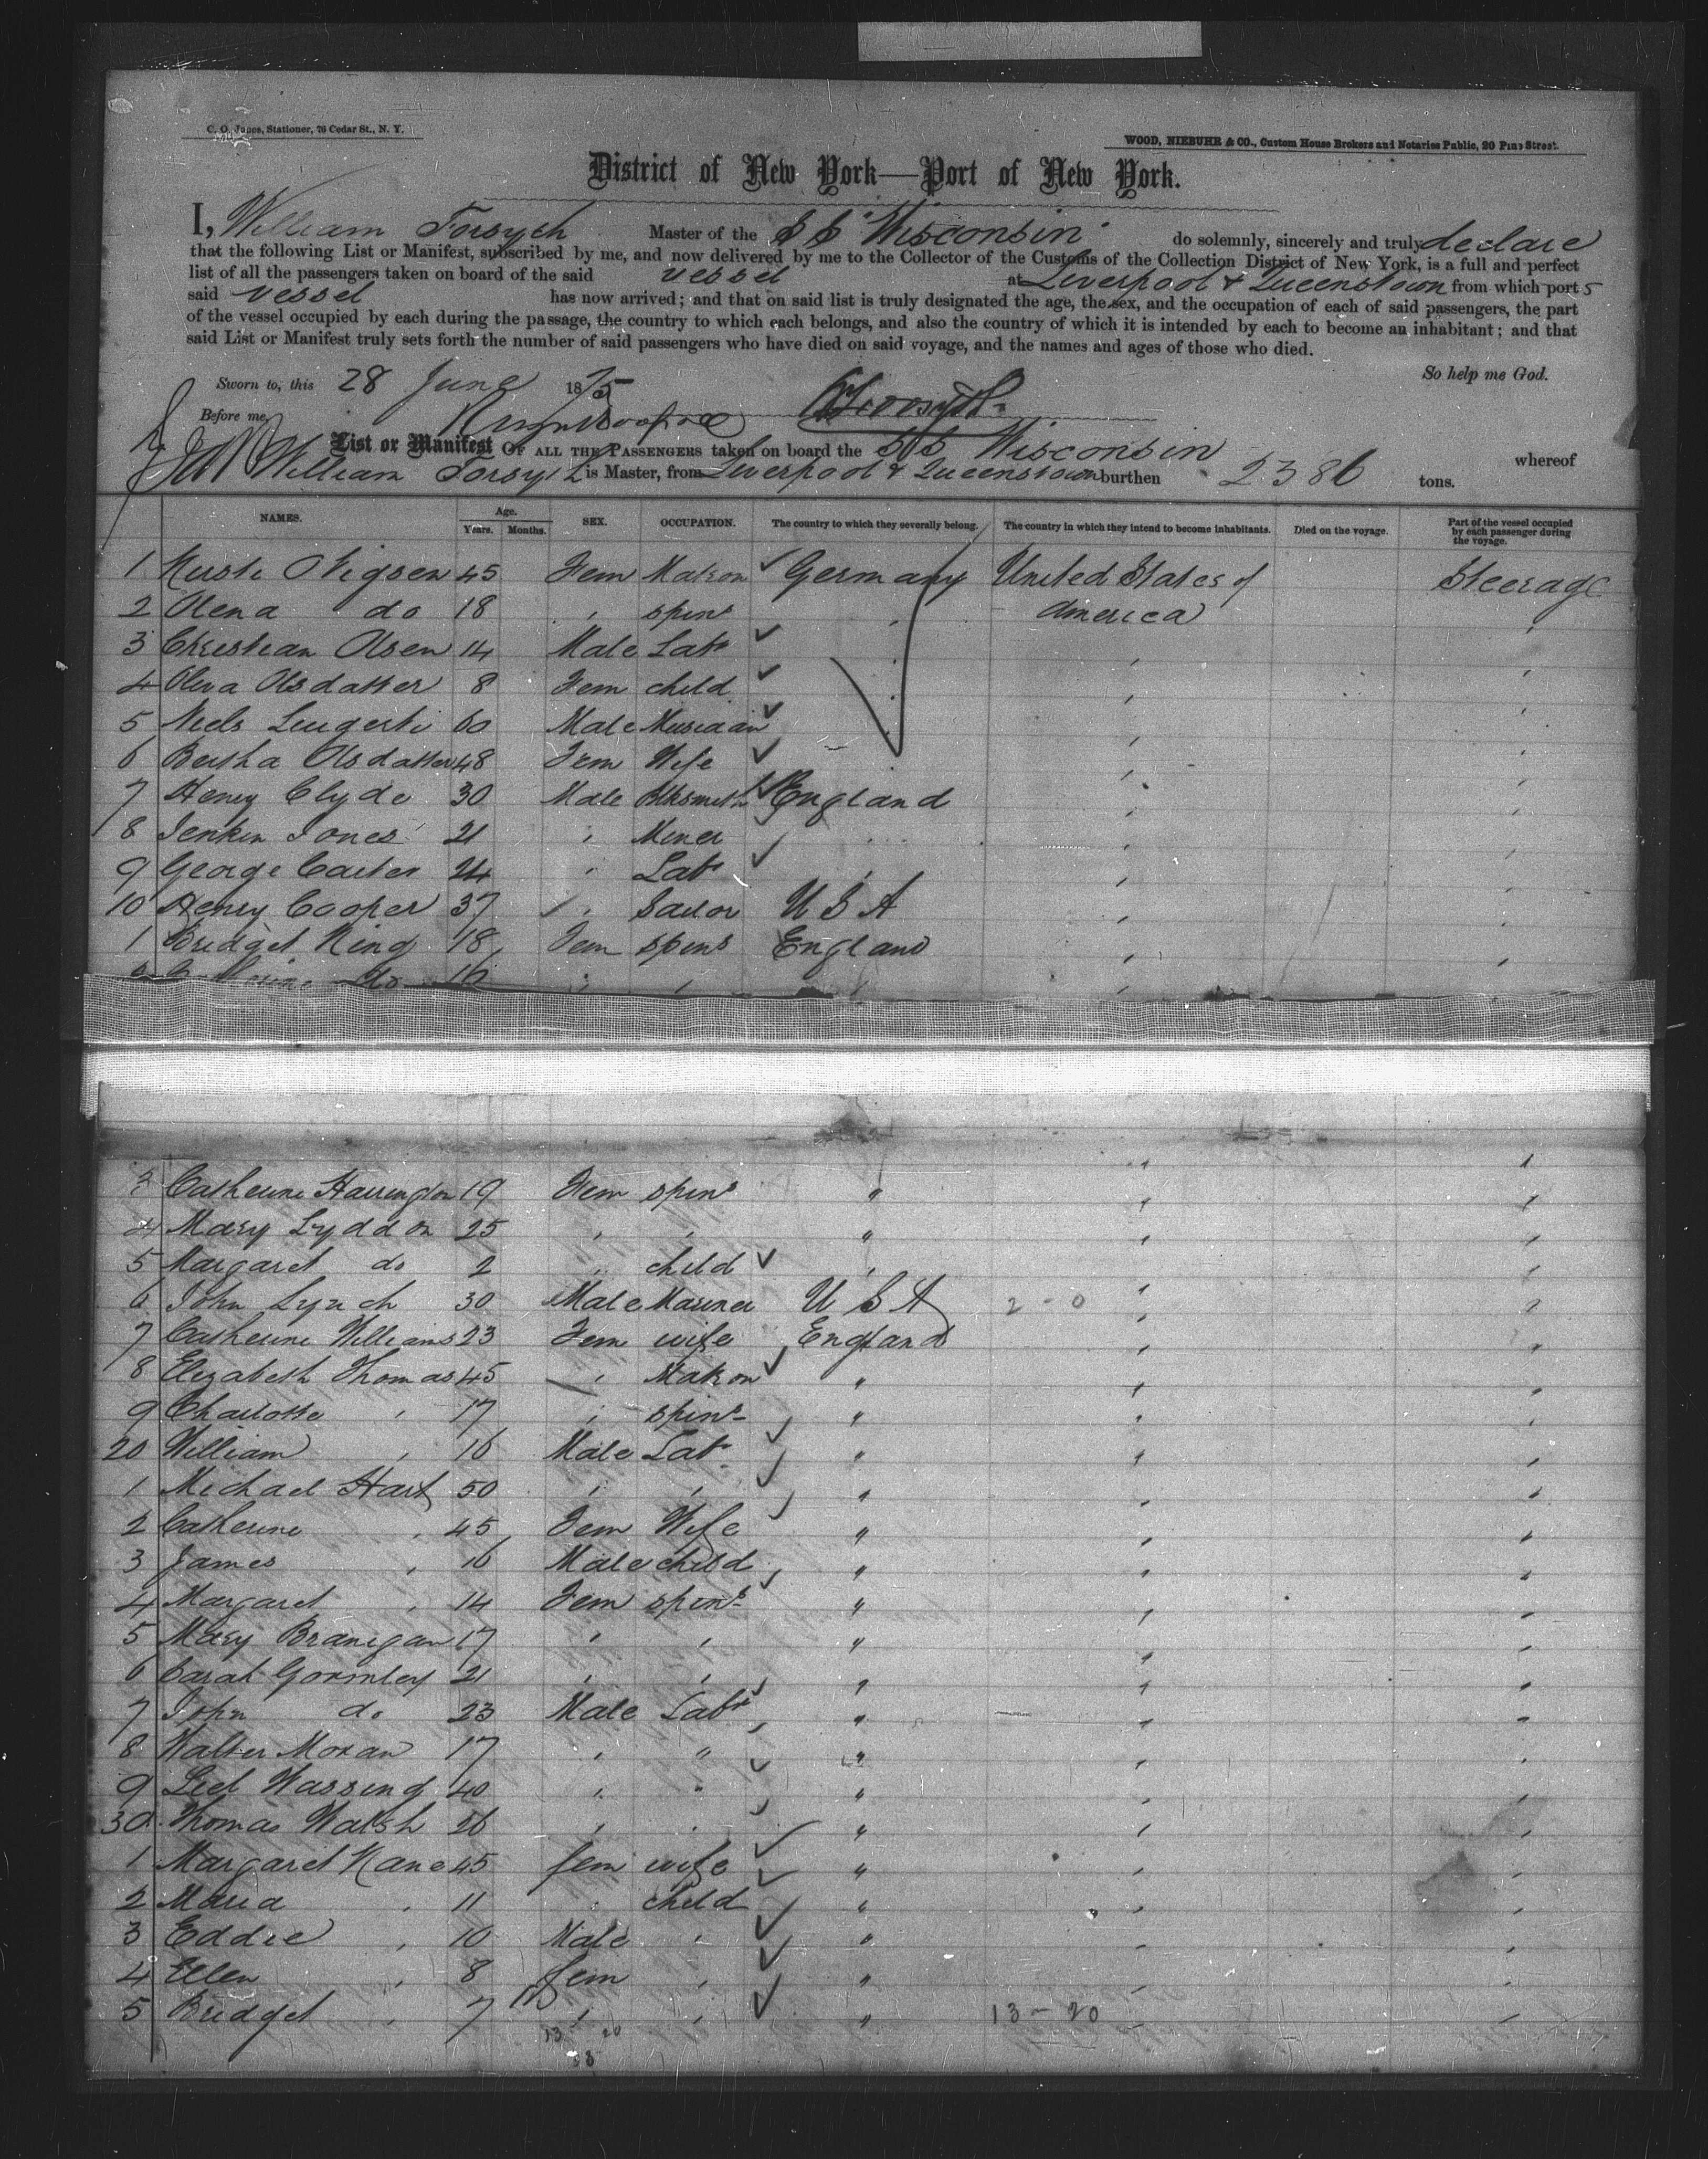 C. O. Jones, Stationer, 76 Cedar St., N. Y.
WOOD, NIEBUHR & CO., Custom House Brokers and Notaries Public, 20 Pine Street.
District of New York—Port of New York.
I, William Forsyth Master of the SS "Wisconsin" do solemnly, sincerely and truly declare
that the following List or Manifest, subscribed by me, and now delivered by me to the Collector of the Customs of the Collection District of New York, is a full and perfect
list of all the passengers taken on board of the said vessel at Liverpool & Queenstown from which ports
said vessel has now arrived; and that on said list is truly designated the age, the sex, and the occupation of each of said passengers, the part
of the vessel occupied by each during the passage, the country to which each belongs, and also the country of which it is intended by each to become an inhabitant; and that
said List or Manifest truly sets forth the number of said passengers who have died on said voyage, and the names and ages of those who died.
So help me God.
Sworn to, this 28 June 1875
Before me,
List or Manifest OF ALL THE PASSENGERS taken on board the SS Wisconsin whereof
William Forsyth is Master, from Liverpool & Queenstown burthen 2386 tons.
NAMES. Age. Years. Months. SEX. OCCUPATION. The country to which they severally belong. The country in which they intend to become inhabitants. Died on the voyage. Part of the vessel occupied by each passenger during the voyage.
1 45 Fem Matron Germany United States of Steerage
2 Olena do 18 " spins " America
3 Christian Olsen 14 Male Labr " " "
4 Oliva Olsdatter 8 Fem child " " "
5 Niels 60 Male Musician " "
6 Bertha Olsdatter 48 Fem Wife " " "
7 Henry Clyde 30 Male Blksmith England " "
8 Jenkin Jones 21 " Miner " " "
9 George Carter 24 " Labr " " "
10 Henry Cooper 37 " Sailor U S A "
1 Bridget King 18 Fem spins England " "
2 do 16 " " "
3 Catherine Harrington 19 Fem spins " " "
4 Mary Lyddon 25 " " " " "
5 Margaret do 2 " child " " "
6 John Lynch 30 Male Mariner U S A 2 - 0 " "
7 Catherine Williams 23 Fem wife England " "
8 Elizabeth Thomas 45 " Matron " " "
9 Charlotte " 17 " spins " " "
20 William " 16 Male Labr " " "
1 Michael Hart 50 " " " " "
2 Catherine " 45 Fem Wife " " "
3 James " 16 Male child " " "
4 Margaret " 14 Fem spins " " "
5 Mary Branigan 17 " " " " "
6 Sarah Gormley 21 " " " " "
7 John do 23 Male Labr " " "
8 Walter Moran 17 " " " " "
9 40 " " " " "
30 Thomas Walsh 26 " " " " "
1 Margaret Kane 45 fem wife " " "
2 Maria " 11 " child " " "
3 Eddie " 10 Male " " " "
4 Ellen " 8 fem " " " "
5 Bridget " 7 " " " 13 - 20 " "
13 20